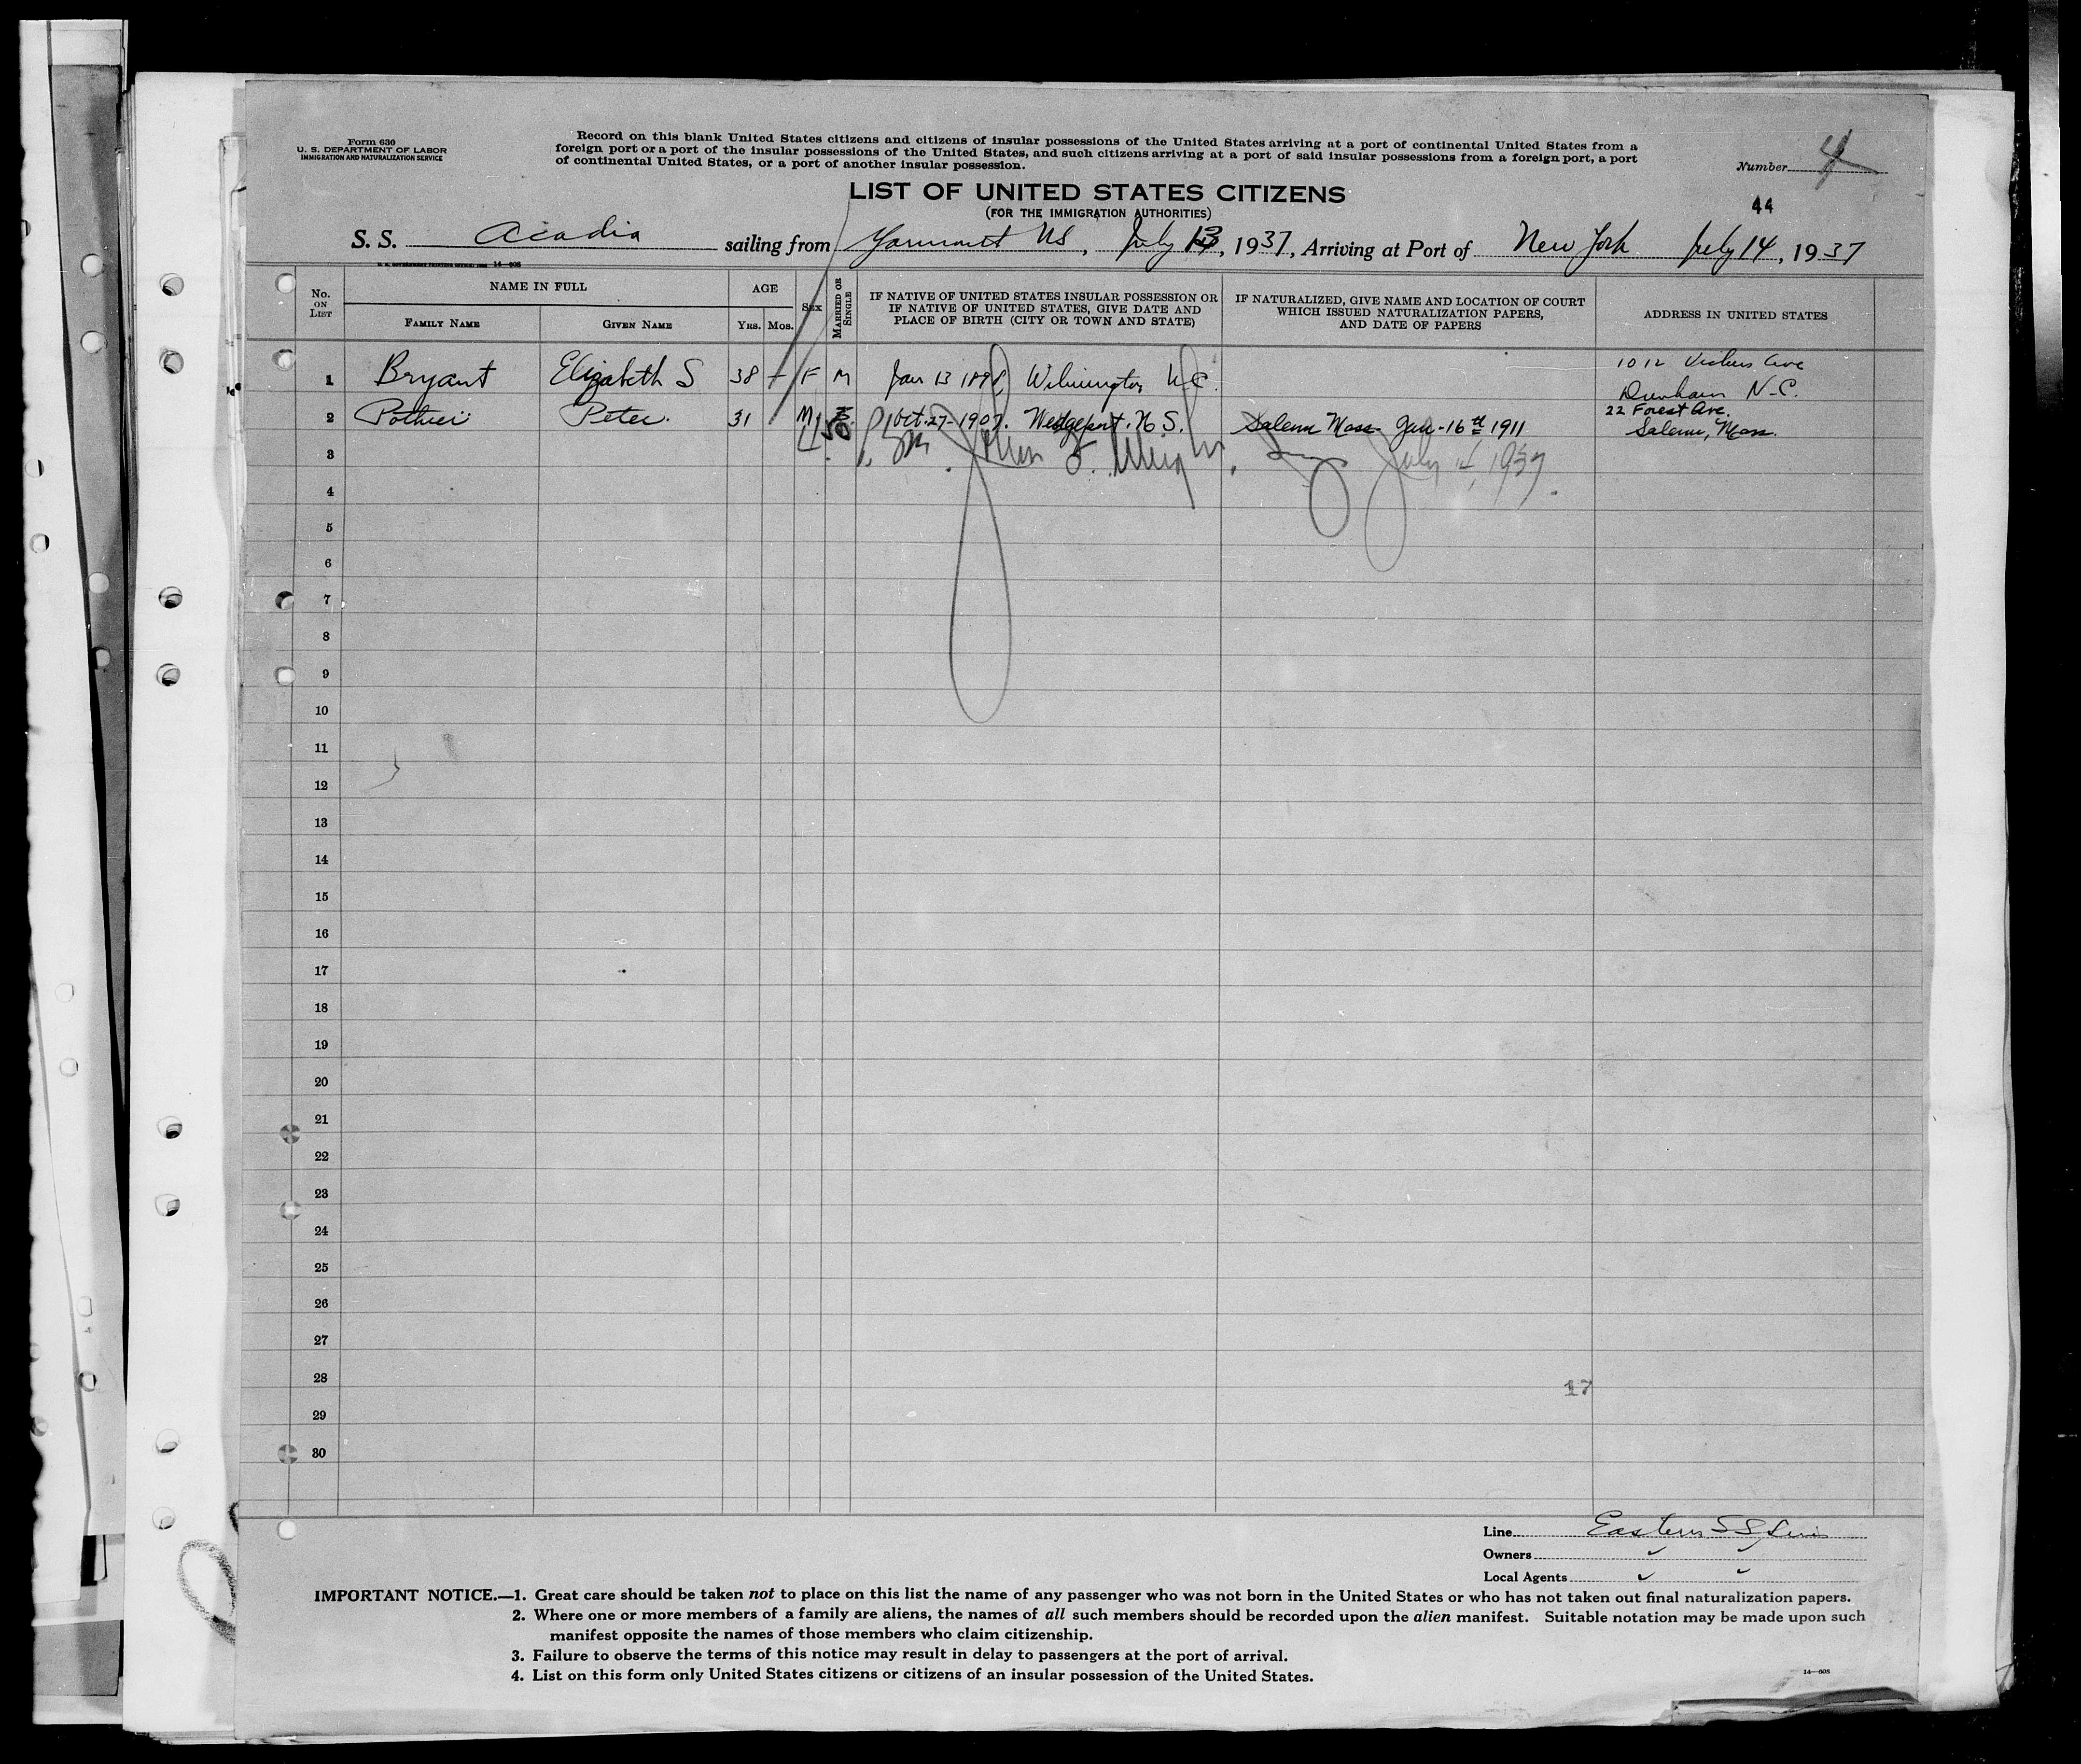 Form 630
U. S. DEPARTMENT OF LABOR
IMMIGRATION AND NATURALIZATION SERVICE
Record on this blank United States citizens and citizens of insular possessions of the United States arriving at a port of continental United States from a
foreign port or a port of the insular possessions of the United States, and such citizens arriving at a port of said insular possessions from a foreign port, a port
of continental United States, or a port of another insular possession.
Number 4
LIST OF UNITED STATES CITIZENS
(FOR THE IMMIGRATION AUTHORITIES)
44
S. S. Acadia sailing from Yarmouth NS, July 13, 1937, Arriving at Port of New York July 14, 1937
No. ON LIST
NAME IN FULL
FAMILY NAME
GIVEN NAME
AGE
YRS. MOS.
SEX
MARRIED OR SINGLE
IF NATIVE OF UNITED STATES INSULAR POSSESSION OR
IF NATIVE OF UNITED STATES, GIVE DATE AND
PLACE OF BIRTH (CITY OR TOWN AND STATE)
IF NATURALIZED, GIVE NAME AND LOCATION OF COURT
WHICH ISSUED NATURALIZATION PAPERS,
AND DATE OF PAPERS
ADDRESS IN UNITED STATES
1 Bryant Elizabeth S 38 - F M Jan 13 1898 Wilmington N.C. 1012 Vickers Ave
Durham N-C.
2 Pothier Peter. 31 M Oct. 27- 1907. Wedgeport. N S. Salem Mass- Jan-16th 1911 22 Forest Ave.
Salem, Mass.
3 John F. July 14, 1937.
4
5
6
7
8
9
10
11
12
13
14
15
16
17
18
19
20
21
22
23
24
25
26
27
28 17
29
30
Line Eastern SS Lines
Owners
Local Agents
IMPORTANT NOTICE.—1. Great care should be taken not to place on this list the name of any passenger who was not born in the United States or who has not taken out final naturalization papers.
2. Where one or more members of a family are aliens, the names of all such members should be recorded upon the alien manifest. Suitable notation may be made upon such
manifest opposite the names of those members who claim citizenship.
3. Failure to observe the terms of this notice may result in delay to passengers at the port of arrival.
4. List on this form only United States citizens or citizens of an insular possession of the United States.
14—608